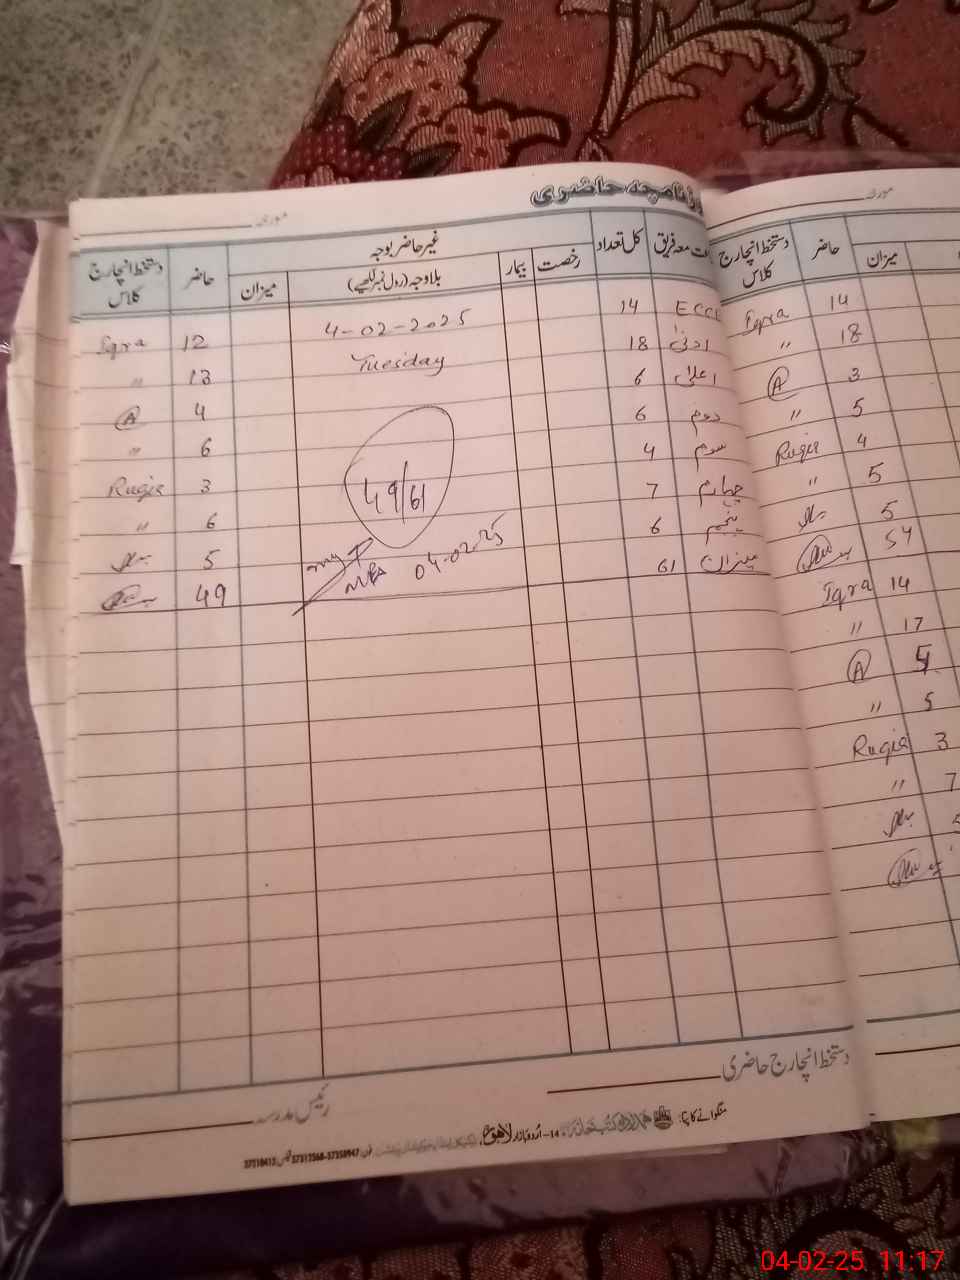 روزنامچہ حاضری
مورخہ
دستخط انچارج کلاس حاضر غیر حاضر بوجہ کل تعداد
میزان بلاوجہ (رول نمبر لکھیے) بیمار رخصت
ECCE 14 4-02-2025 12 Iqra
ادنیٰ 18 Tuesday 13 〃
اعلیٰ 6 4 A
دوم 6 6 〃
سوم 4 49/61 3 Ruqia
چہارم 7 6 〃
پنجم 6 04-02-25 5
میزان 61 49
دستخط انچارج حاضری
رئیس مدرسہ
منگوانے کا پتا:
14-اُردو بازار لاہور
فون 37358947-37313568 فیکس 37310413
مورخہ
دستخط انچارج کلاس حاضر میزان
Iqra 14
〃 18
A 3
〃 5
Ruqia 4
〃 5
5
54
Iqra 14
〃 17
A 5
〃 5
Ruqia 3
〃 7
04-02-25 11:17